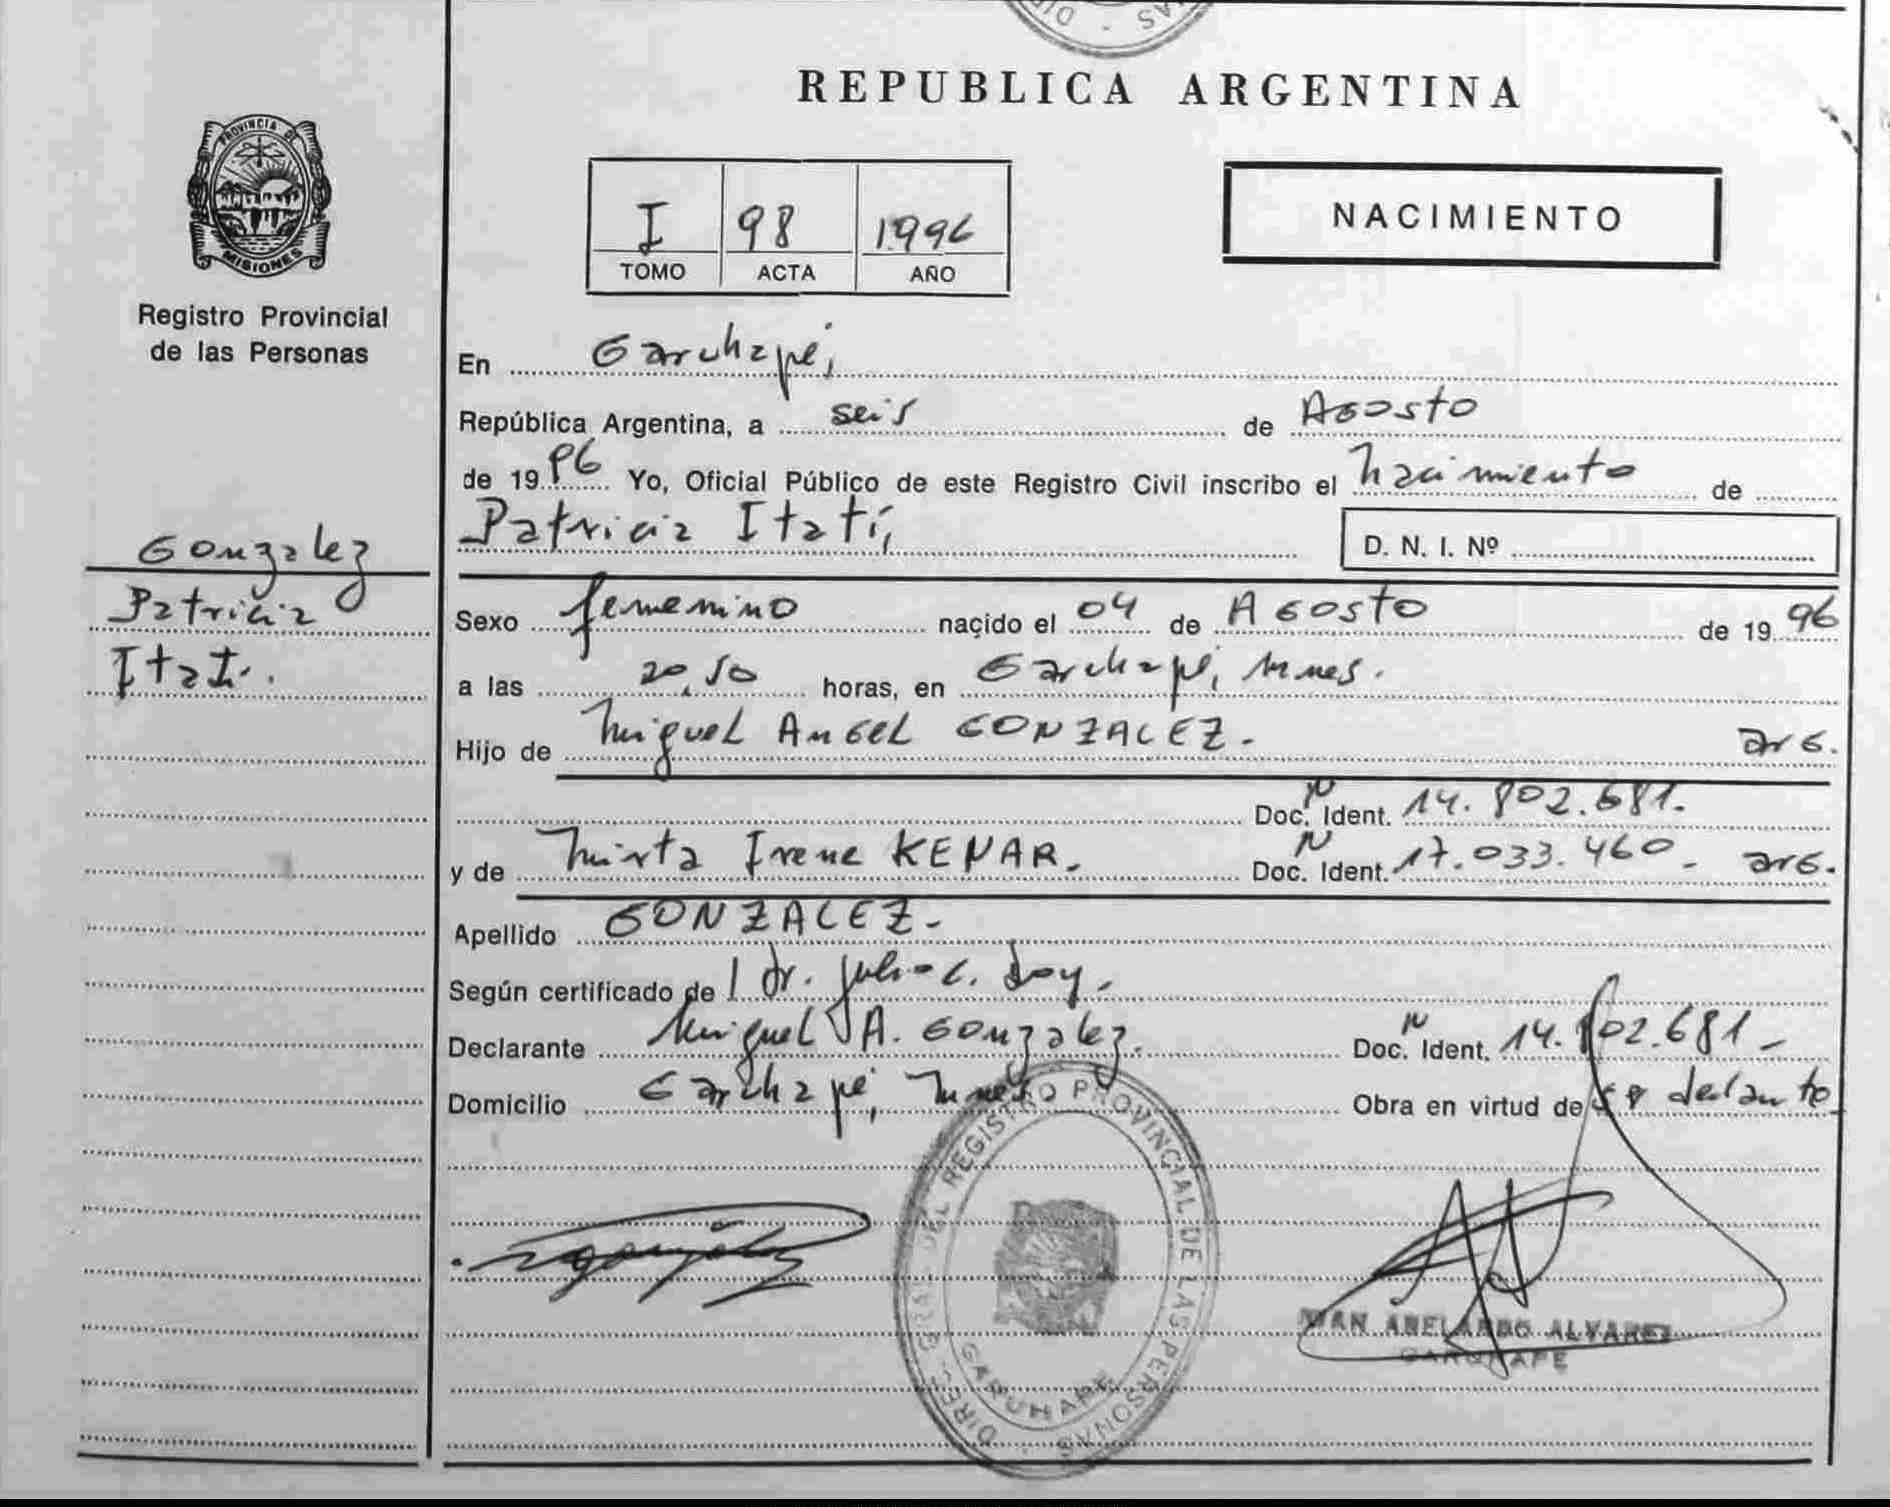 REPUBLICA ARGENTINA
PROVINCIA DE
MISIONES
Registro Provincial
de las Personas
I 98 1996
TOMO ACTA AÑO
NACIMIENTO
En Garuhapé,
República Argentina, a seis de Agosto
de 1996 Yo, Oficial Público de este Registro Civil inscribo el nacimiento de
Patricia Itatí,
D. N. I. Nº
Gonzalez
Patricia
Itatí.
Sexo femenino nacido el 04 de Agosto de 1996
a las 20,50 horas, en Garuhapé, Mnes.
Hijo de Miguel Angel GONZALEZ. arg.
Doc. N Ident. 14.802.681.
y de Mirta Irene KENAR. Doc. N Ident. 17.033.460. arg.
Apellido GONZALEZ.
Según certificado de dr. Julio C.
Declarante Miguel A. Gonzalez. Doc. N Ident. 14.802.681
Domicilio Garuhapé, Mnes Obra en virtud de
DIREC. GRAL. DEL REGISTRO PROVINCIAL DE LAS PERSONAS
GARUHAPE
ABELARDO ALVAREZ
GARUHAPE